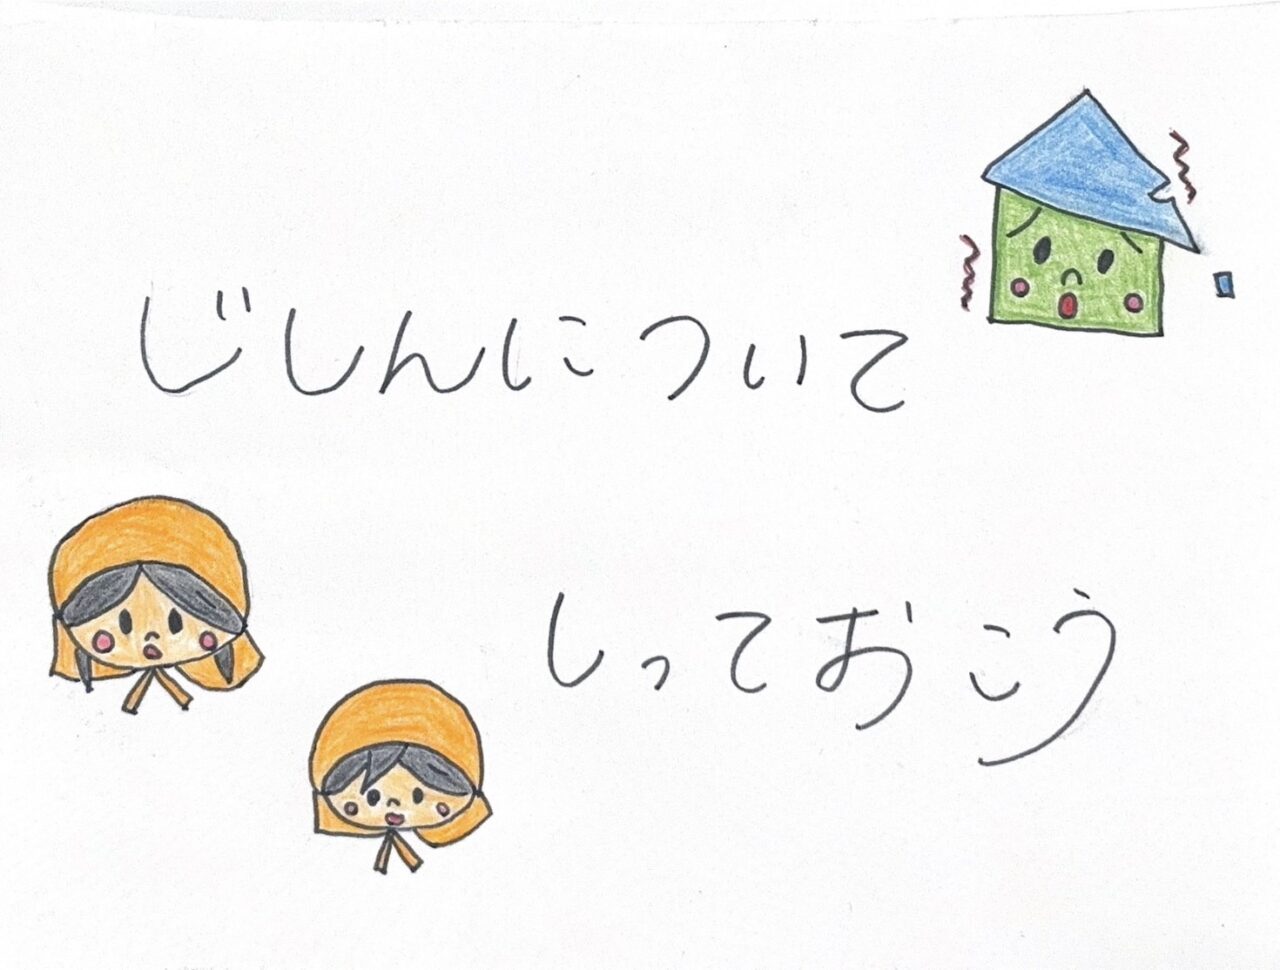 じしんについて
しっておこう